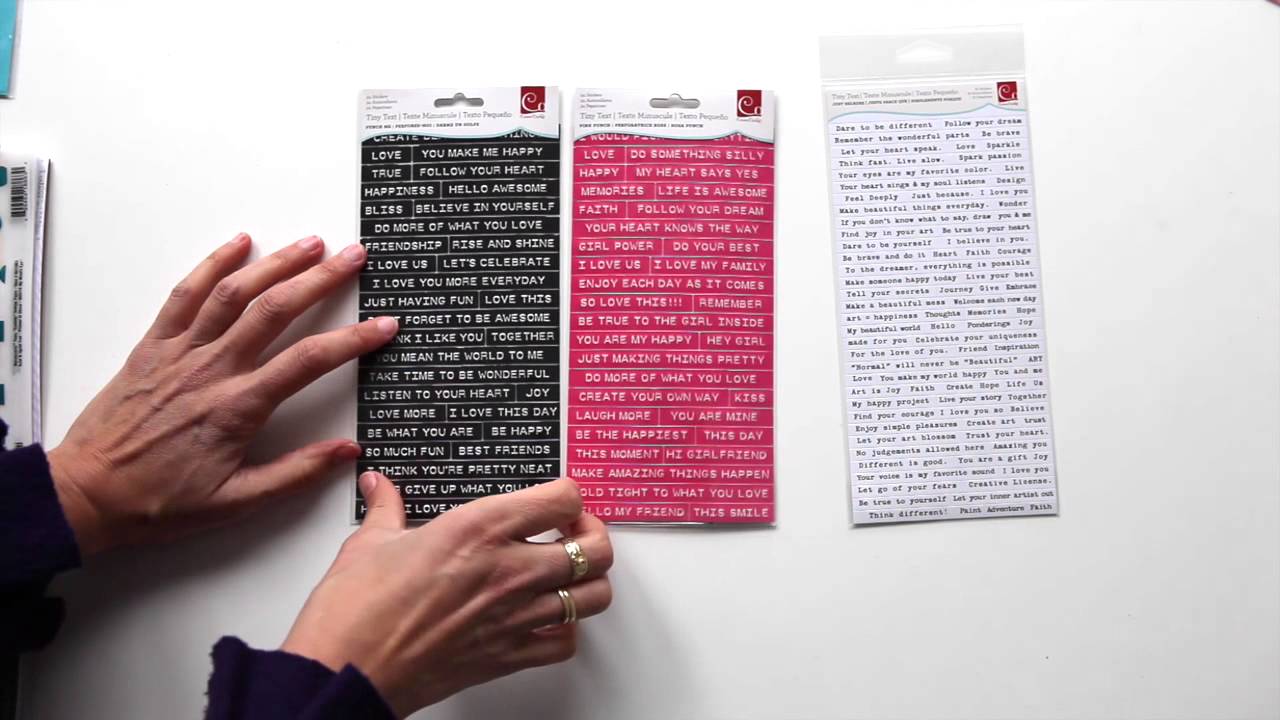 Tiny Text | Texte Minuscule | Texto Pequeño
LOVE YOU MAKE ME HAPPY
TRUE FOLLOW YOUR HEART
HAPPINESS HELLO AWESOME
BLISS BELIEVE IN YOURSELF
DO MORE OF WHAT YOU LOVE
FRIENDSHIP RISE AND SHINE
I LOVE US LET'S CELEBRATE
I LOVE YOU MORE EVERYDAY
JUST HAVING FUN LOVE THIS
FORGET TO BE AWESOME
I LIKE YOU TOGETHER
YOU MEAN THE WORLD TO ME
TAKE TIME TO BE WONDERFUL
LISTEN TO YOUR HEART JOY
LOVE MORE I LOVE THIS DAY
BE WHAT YOU ARE BE HAPPY
SO MUCH FUN BEST FRIENDS
I THINK YOU'RE PRETTY NEAT
GIVE UP WHAT YOU
I LOVE
Tiny Text | Texte Minuscule | Texto Pequeño
LOVE DO SOMETHING SILLY
HAPPY MY HEART SAYS YES
MEMORIES LIFE IS AWESOME
FAITH FOLLOW YOUR DREAM
YOUR HEART KNOWS THE WAY
GIRL POWER DO YOUR BEST
I LOVE US I LOVE MY FAMILY
ENJOY EACH DAY AS IT COMES
SO LOVE THIS!!! REMEMBER
BE TRUE TO THE GIRL INSIDE
YOU ARE MY HAPPY HEY GIRL
JUST MAKING THINGS PRETTY
DO MORE OF WHAT YOU LOVE
CREATE YOUR OWN WAY KISS
LAUGH MORE YOU ARE MINE
BE THE HAPPIEST THIS DAY
THIS MOMENT HI GIRLFRIEND
MAKE AMAZING THINGS HAPPEN
HOLD TIGHT TO WHAT YOU LOVE
HELLO MY FRIEND THIS SMILE
Tiny Text | Texte Minuscule | Texto Pequeño
Dare to be different Follow your dream
Remember the wonderful parts Be brave
Let your heart speak. Love Sparkle
Think fast. Live slow. Spark passion
Your eyes are my favorite color. Live
Your heart sings & my soul listens Design
Feel Deeply Just because. I love you
Make beautiful things everyday. Wonder
If you don't know what to say, draw you & me
Find joy in your art Be true to your heart
Dare to be yourself I believe in you.
Be brave and do it Heart Faith Courage
To the dreamer, everything is possible
Make someone happy today Live your best
Tell your secrets Journey Give Embrace
Make a beautiful mess Welcome each new day
art = happiness Thoughts Memories Hope
My beautiful world Hello Ponderings Joy
made for you Celebrate your uniqueness
For the love of you. Friend Inspiration
"Normal" will never be "Beautiful" ART
Love You make my world happy You and me
Art is Joy Faith Create Hope Life Us
My happy project Live your story Together
Find your courage I love you so Believe
Enjoy simple pleasures Create art trust
Let your art blossom Trust your heart.
No judgements allowed here Amazing you
Different is good. You are a gift Joy
Your voice is my favorite sound I love you
Let go of your fears Creative License.
Be true to yourself Let your inner artist out
Think different! Paint Adventure Faith